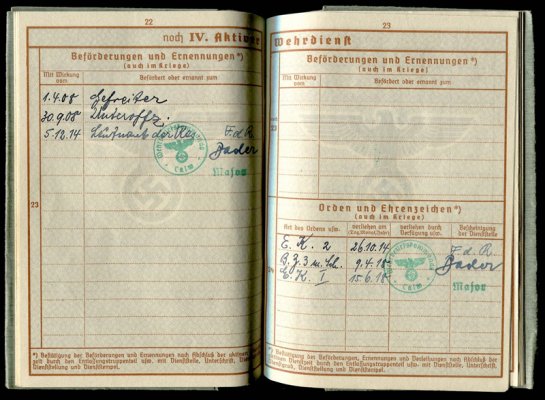 22
noch IV. Aktiver
Beförderungen und Ernennungen*)
(auch im Kriege)
Mit Wirkung vom
Befördert oder ernannt zum
1.4.08 Gefreiter
30.9.08 Unteroffz.
5.12.14 Leutnant der Res.
F. d. R.
Bader
Major
Calw
23
23
Wehrdienst
Beförderungen und Ernennungen*)
(auch im Kriege)
Mit Wirkung vom
Befördert oder ernannt zum
Orden und Ehrenzeichen*)
(auch im Kriege)
Art des Ordens usw.
verliehen am (Tag, Monat, Jahr)
verliehen durch Verfügung usw.
Bescheinigung der Dienststelle
E. K. 2 26.10.14
9.4.18
E. K. I 15.6.18
F. d. R.
Bader
Major
Calw
*) Bestätigung der Beförderungen und Ernennungen nach Abschluß der aktiven
zeit durch den Entlassungstruppenteil usw. mit Dienststelle, Unterschrift,
und Dienststempel.
*) Bestätigung der Beförderungen, Ernennungen und Verleihungen nach Abschluß der
Dienstzeit durch den Entlassungstruppenteil usw. mit Dienststelle, Unterschrift,
Dienstgrad, Dienststellung und Dienststempel.